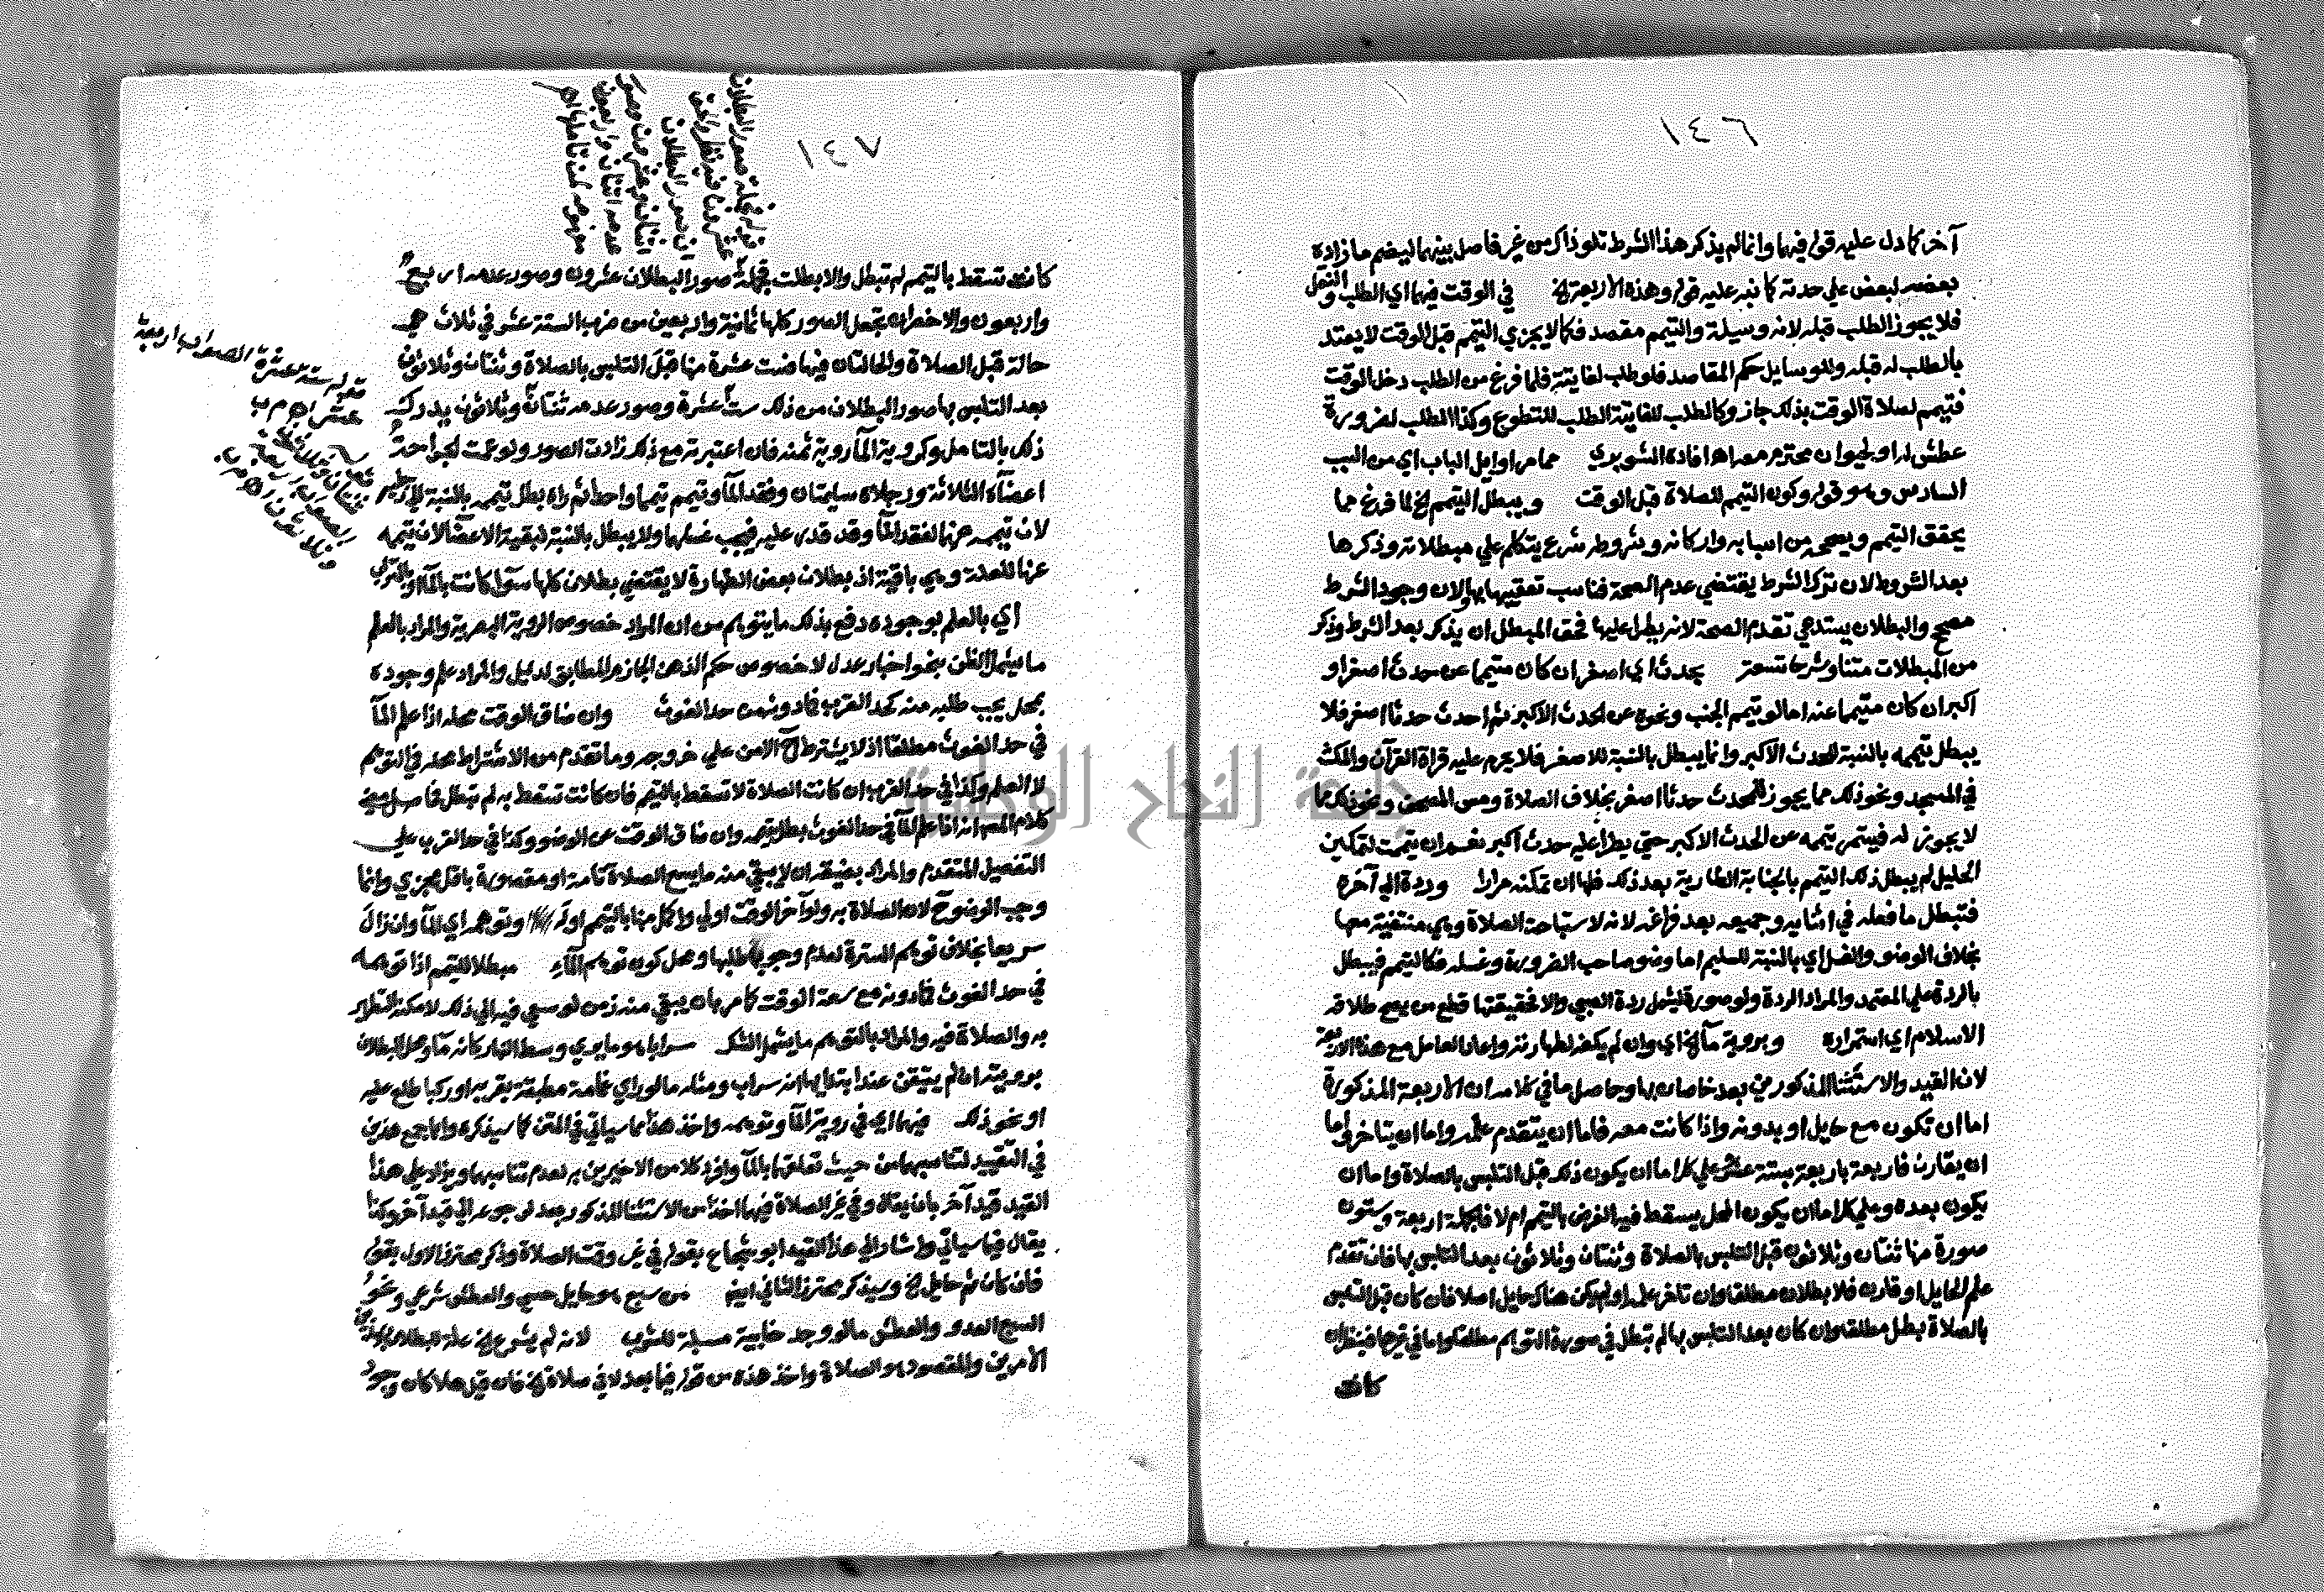 ١٤٦
آخر كما دل عليه قوله فيهما وانما لم يذكر هذا الشرط تلو ذاك من غير فاصل بينهما ليضم ما زاده
بعضه لبعض علي حدته كما نبه عليه قوله وهذه الاربعة الخ في الوقت فيهما اي الطلب والنقل
فلا يجوز الطلب قبله لانه وسيلة والتيمم مقصد فكما لا يجزي التيمم قبل الوقت لا يعتد
بالطلب له قبله وللوسايل حكم المقاصد فلو طلب لفايتة فلما فرغ من الطلب دخل الوقت
فتيمم لصلاة الوقت بذلك جاز وكالطلب للفايتة الطلب للتطوع وكذا الطلب لضرورة
عطش له او لحيوان محترم معه اهـ افاده الشوبري مما مر اوايل الباب اي من السبب
السادس وهو قوله وكون التيمم للصلاة قبل الوقت ويبطل التيمم الخ لما فرغ مما
يحقق التيمم ويصححه من اسبابه واركانه وشروطه شرع يتكلم علي مبطلاته وذكرها
بعد الشروط لان ترك الشرط يقتضي عدم الصحة فناسب تعقيبها بها ولان وجود الشرط
مصحح والبطلان يستدعي تقدم الصحة لانه يطرا عليها فحق المبطل ان يذكر بعد الشرط وذكر
من المبطلات متنا وشرحا تسعة بحدث اي اصغر ان كان متيمما عن حدث اصغر او
اكبر ان كان متيمما عنه اما لو تيمم الجنب ونحوه عن الحدث الاكبر ثم احدث حدثا اصغر فلا
يبطل تيممه بالنسبة للحدث الاكبر وانما يبطل بالنسبة للاصغر فلا يحرم عليه قراة القرآن والمكث
في المسجد ونحو ذلك مما يجوز للمحدث حدثا اصغر بخلاف الصلاة ومس المصحف ونحو ذلك مما
لا يجوز له فيستمر تيممه عن الحدث الاكبر حتي يطرا عليه حدث اكبر نعم ان تيممت لتمكين
الحليل لم يبطل ذلك التيمم بالجنابة الطارية بعد ذلك فلها ان تمكنه مرارا وردة الي آخره
فتبطل ما فعله في اثنايه وجميعه بعد فراغه لانه لاستباحة الصلاة وهي منتفية معها
بخلاف الوضو والغسل اي بالنسبة للسليم اما وضو صاحب الضرورة وغسله فكالتيمم فيبطل
بالردة علي المعتمد والمراد الردة ولو صورة ليشمل ردة الصبي والا فحقيقتها قطع من يصح طلاقه
الاسلام اي استمراره وبروية مآ الخ اي وان لم يكفه لطهارته واعاد العامل مع هذا الاربعة
لان القيد والاستثنا المذكورين بعد خاصان بها وحاصل ما في كلامه ان الاربعة المذكورة
اما ان تكون مع حايل او بدونه واذا كانت معه فاما ان يتقدم علمه واما ان يتاخر واما
ان يقارن فاربعة باربعة بستة عشر علي كل اما ان يكون ذلك قبل التلبس بالصلاة واما ان
يكون بعده وعلي كل اما ان يكون المحل يسقط فيه الفرض بالتيمم ام لا فالجملة اربعة وستون
صورة منها ثنتان وثلاثون قبل التلبس بالصلاة وثنتان وثلاثون بعد التلبس بها فان تقدم
علم الحايل او قارن فلا بطلان مطلقا وان تاخر علمه او لم يكن هناك حايل اصلا فان كان قبل التلبس
بالصلاة بطل مطلقا وان كان بعد التلبس بها لم تبطل في صورة التوهم مطلقا واما في غيرها فينظر ان
كانت
١٤٧
قوله فجملة صور البطلان
عشرون فيه نظر والحق
ان صور البطلان
اثنان وعشرون وصور
عدمه اثنان واربعون
كانت تسقط بالتيمم لم تبطل والا بطلت فجملة صور البطلان عشرون وصور عدمه اربع
واربعون والاخصر ان تجعل الصور كلها ثمانية واربعين من ضرب الستة عشر في ثلاث هي
حالة قبل الصلاة والحالتان فيها ضت عشرة منها قبل التلبس بالصلاة وثنتان وثلاثون
بعد التلبس بها صور البطلان من ذلك ست عشرة وصور عدمه ثنتان وثلاثون يدرك
ذلك بالتامل وكروية المآ روية ثمنه فان اعتبرته مع ذلك زادت الصور ولو عمت الجراحة
اعضآه الثلاثة ورجلاه سليمتان وفقد المآ وتيمم تيمما واحدا ثم راه بطل تيممه بالنسبة للرجلين
لان تيممه عنهما لفقد المآ وقد قدر عليه فيجب غسلهما ولا يبطل بالنسبة لبقية الاعضآ لان تيممه
عنها للعلة وهي باقية اذ بطلان بعض الطهارة لا يقتضي بطلان كلها سوآ كانت بالمآ او بالتراب
اي بالعلم بوجوده دفع بذلك ما يتوهم من ان المراد خصوص الروية البصرية والمراد بالعلم
ما يشمل الظن بنحو اخبار عدل لا خصوص حكم الذهن الجازم المطابق لدليل والمراد علم وجوده
بمحل يجب طلبه منه كحد القرب فما دونه من حد الغوث وان ضاق الوقت محله اذا علم المآ
في حد الغوث مطلقا اذ لا يشترط ح الامن علي خروجه وما تقدم من الاشتراط محله في التوهم
لا العلم وكذا في حد القرب ان كانت الصلاة لا تسقط بالتيمم فان كانت تسقط به لم تبطل فاصل معني
كلام المصم انه اذا علم المآ في حد الغوث بطل تيممه وان ضاق الوقت عن الوضو وكذا في حد القرب علي
التفصيل المتقدم والمراد بضيقه ان لا يبقي منه ما يسع الصلاة تامة او مقصورة باقل مجزي وانما
وجب الوضو ح لان الصلاة به ولو آخر الوقت اولي واكمل منها بالتيمم اوله وتوهمه اي المآ وان زال
سريعا بخلاف توهم السترة لعدم وجوب طلبها ومحل كون توهم المآء مبطلا للتيمم اذا توهمه
في حد الغوث فما دونه مع سعة الوقت كما مر بان يبقي منه زمن لو سعي فيه الي ذلك لامكنه التطهر
به والصلاة فيه والمراد بالتوهم ما يشمل الشك سرابا هو ما يري وسط النهار كانه مآ ومحل البطلان
برويته ان لم يتيقن عند ابتدايها انه سراب ومثله ما لو راي غمامة مطبقة بقربه او ركبا طلع عليه
او نحو ذلك فيهما اي في روية المآ وتوهمه واخذ هذا مما سياتي في المتن كما سيذكره وانما جمع هذين
في التقييد لتناسبهما من حيث تعلقهما بالمآ وافرد كلا من الاخيرين به لعدم تناسبهما ويزاد علي هذا
القيد قيد آخر بان يقال وفي غير الصلاة فيهما اخذا من الاستثنا المذكور بعد لرجوعه الي قيد آخر وكذا
يقال فيما سياتي واشار الي هذا القيد ابو شجاع بقوله في غير وقت الصلاة وذكر محترز الاول بقوله
فان كان ثم حايل الخ وسيذكر محترز الثاني ايضا من سبع هو حايل حسي والعطش شرعي ونحو
السبع العدو والعطش ما لو وجد خابية مسبلة للشرب لانه لم يشرع الخ علة للبطلان بهذين
الامرين والمقصود هو الصلاة واخذ هذه من قوله فيما بعد لا في صلاة الخ فان قيل هلا كان وجود
قوله ستة عشرة الصواب اربعة
عشر اهـ م ب